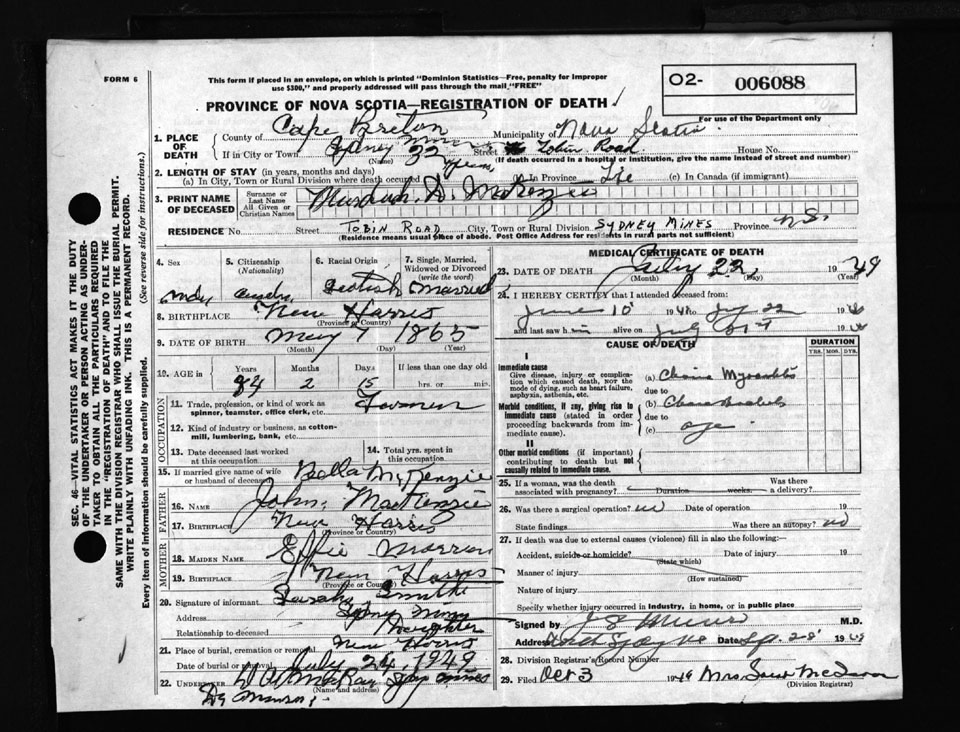 FORM 6
This form if placed in an envelope, on which is printed "Dominion Statistics—Free, penalty for improper
use $300," and properly addressed will pass through the mail "FREE"
O2- 006088
For use of the Department only
PROVINCE OF NOVA SCOTIA—REGISTRATION OF DEATH
1. PLACE OF DEATH
County of Cape Breton Municipality of Nova Scotia
If in City or Town Sydney Mines Street Tobin Road House No.
(Name) (If death occurred in a hospital or institution, give the name instead of street and number)
2. LENGTH OF STAY (in years, months and days)
(a) In City, Town or Rural Division where death occurred 32 years (b) In Province Life (c) In Canada (if immigrant)
3. PRINT NAME OF DECEASED
Surname or Last Name
All Given or Christian Names
Murdoch D. McKenzie
RESIDENCE No. Street TOBIN ROAD City, Town or Rural Division SYDNEY MINES Province N.S.
(Residence means usual place of abode. Post Office Address for residents in rural parts not sufficient)
4. Sex
5. Citizenship (Nationality)
6. Racial Origin Scotish
7. Single, Married, Widowed or Divorced (write the word) Married
8. BIRTHPLACE New Harris
(Province or Country)
9. DATE OF BIRTH May 7 1865
(Month) (Day) (Year)
10. AGE in Years Months Days If less than one day old
84 2 15 hrs. or min.
OCCUPATION
11. Trade, profession, or kind of work as spinner, teamster, office clerk, etc.
12. Kind of industry or business, as cotton-mill, lumbering, bank, etc.
13. Date deceased last worked at this occupation
14. Total yrs. spent in this occupation.
15. If married give name of wife or husband of deceased Bella McKenzie
FATHER
16. Name John MacKenzie
17. Birthplace New Harris
(Province or Country)
MOTHER
18. Maiden Name Effie
19. Birthplace New Harris
(Province or Country)
20. Signature of informant Smith
Address Sydney Mines
Relationship to deceased Daughter
21. Place of burial, cremation or removal New Harris
Date of burial or removal July 24, 1949
22. Undertaker MacKay Syd Mines
(Name and address)
MEDICAL CERTIFICATE OF DEATH
23. DATE OF DEATH July 22, 1949
(Month) (Day) (Year)
24. I HEREBY CERTIFY that I attended deceased from:
June 10 19 to July 22 19
and last saw him alive on July 21st 19
CAUSE OF DEATH
DURATION
YRS. MOS. DYS.
I
Immediate cause
Give disease, injury or complication which caused death, NOT the mode of dying, such as heart failure, asphyxia, asthenia, etc.
(a)
due to
Morbid conditions, if any, giving rise to immediate cause (stated in order proceeding backwards from immediate cause).
(b)
due to
(c) age
II
Other morbid conditions (if important) contributing to death but not causally related to immediate cause.
25. If a woman, was the death associated with pregnancy? Duration weeks. Was there a delivery?
26. Was there a surgical operation? no Date of operation 19
State findings Was there an autopsy? no
27. If death was due to external causes (violence) fill in also the following:
Accident, suicide or homicide? Date of injury 19
(State which)
Manner of injury
(How sustained)
Nature of injury
Specify whether injury occurred in industry, in home, or in public place
Signed by M.D.
Address Date Sept. 28 19
28. Division Registrar's Record Number
29. Filed Oct 3 1949 Mrs.
(Division Registrar)
SEC. 46—VITAL STATISTICS ACT MAKES IT THE DUTY
OF THE UNDERTAKER OR PERSON ACTING AS UNDERTAKER TO OBTAIN ALL THE PARTICULARS REQUIRED
IN THE "REGISTRATION OF DEATH" AND TO FILE THE
SAME WITH THE DIVISION REGISTRAR WHO SHALL ISSUE THE BURIAL PERMIT.
WRITE PLAINLY WITH UNFADING INK. THIS IS A PERMANENT RECORD.
Every item of information should be carefully supplied. (See reverse side for instructions.)